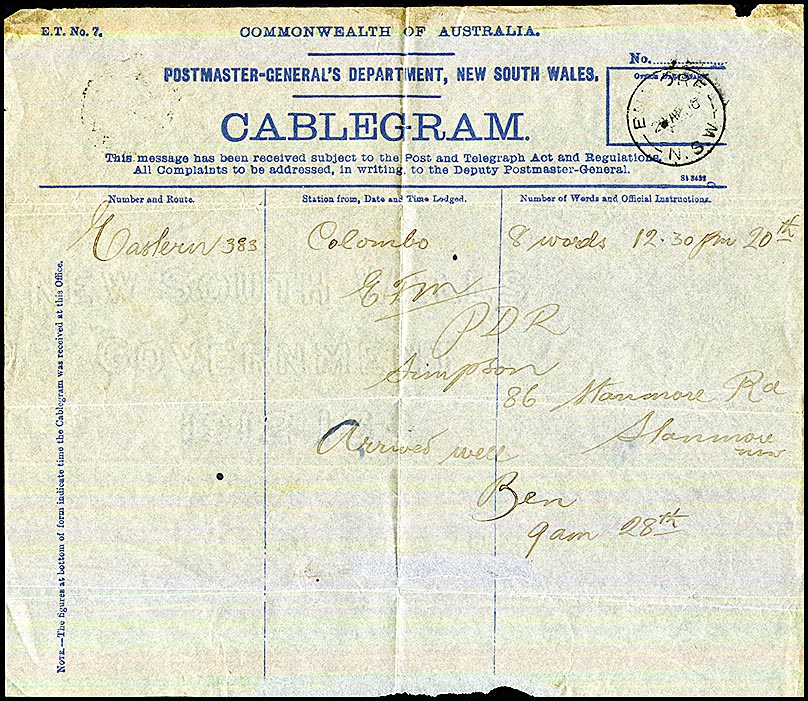 E.T. No. 7.
COMMONWEALTH OF AUSTRALIA.
No.
POSTMASTER-GENERAL'S DEPARTMENT, NEW SOUTH WALES.
CABLEGRAM.
This message has been received subject to the Post and Telegraph Act and Regulations.
All Complaints to be addressed, in writing, to the Deputy Postmaster-General.
N.S.W
Number and Route.
Station from, Date and Time Lodged.
Number of Words and Official Instructions.
Eastern 383 Colombo 8 words 12.30 pm 20th
EFM
PDR
Simpson
86 Stanmore Rd
Stanmore
nsw
Arrived well
Ben
9am 28th
NOTE.—The figures at bottom of form indicate time the Cablegram was received at this Office.